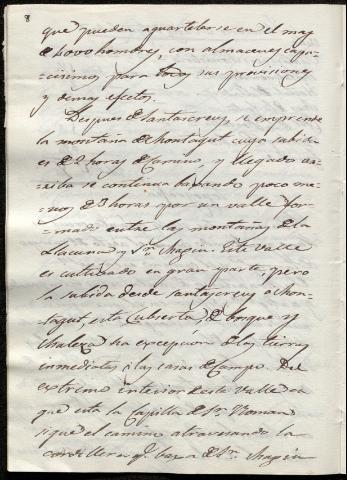 8
que pueden aquartelarse en el mas
de 6000 hombres, con almacenes capa-
-cisimos para todas sus provisiones
y demas efectos.
Despues de Santascreus, se emprende
la montaña de Montagut cuya subida
es de 2 horas de camino, y llegado ar-
-riba se continua baxando poco me-
-nos de 3 horas por un valle for-
-mado entre las montañas de la
Llacuna y Sn. Magin. Este valle
es cultivado en gran parte, pero
la subida desde Santascreus a Mon-
-tagut, està cubierta de bosque y
maleza ha excepcion de las tierras
inmediatas à las casas de campo. Del
extremo interior de este Valle en
que està la Capilla de Sn. Roman
sigue el camino atravesando la
cordillera q. baxa de Sn. Magin